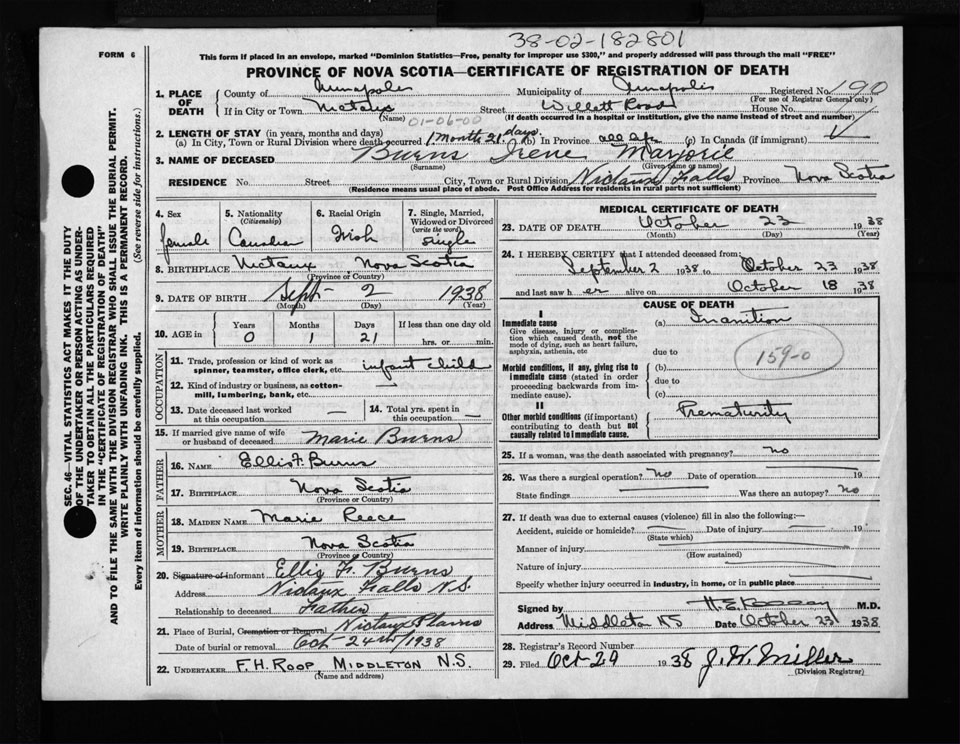 38-02-182801
FORM 6
This form if placed in an envelope, marked "Dominion Statistics—Free, penalty for improper use $300," and properly addressed will pass through the mail "FREE"
PROVINCE OF NOVA SCOTIA—CERTIFICATE OF REGISTRATION OF DEATH
1. PLACE OF DEATH County of Annapolis Municipality of Annapolis Registered No. 190
(For use of Registrar General only)
If in City or Town Nictaux Street Willett Road House No.
(Name) 01-06-00 (If death occurred in a hospital or institution, give the name instead of street and number)
2. LENGTH OF STAY (in years, months and days)
(a) In City, Town or Rural Division where death occurred 1 month 21 days. (b) In Province all life (c) In Canada (if immigrant)
3. NAME OF DECEASED Burns Irene Marjorie
(Surname) (Given name or names)
RESIDENCE No. Street City, Town or Rural Division Nictaux Falls Province Nova Scotia
(Residence means usual place of abode. Post Office Address for residents in rural parts not sufficient)
4. Sex female
5. Nationality (Citizenship) Canadian
6. Racial Origin Irish
7. Single, Married, Widowed or Divorced (write the word) single
8. BIRTHPLACE Nictaux Nova Scotia
(Province or Country)
9. DATE OF BIRTH Sept- 2 1938
(Month) (Day) (Year)
10. AGE in Years Months Days If less than one day old
0 1 21 hrs. or min.
OCCUPATION
11. Trade, profession or kind of work as spinner, teamster, office clerk, etc. infant child
12. Kind of industry or business, as cotton-mill, lumbering, bank, etc. —
13. Date deceased last worked at this occupation —
14. Total yrs. spent in this occupation —
15. If married give name of wife or husband of deceased Marie Burns
FATHER
16. NAME Ellis F. Burns
17. BIRTHPLACE Nova Scotia
(Province or Country)
MOTHER
18. MAIDEN NAME Marie Reece
19. BIRTHPLACE Nova Scotia
(Province or Country)
20. Signature of informant Ellis F. Burns
Address Nictaux Falls N.S.
Relationship to deceased Father
21. Place of Burial, Cremation or Removal Nictaux Plains
Date of burial or removal Oct- 24th/1938
22. UNDERTAKER F.H. ROOP, MIDDLETON N.S.
(Name and address)
MEDICAL CERTIFICATE OF DEATH
23. DATE OF DEATH October 23 1938
(Month) (Day) (Year)
24. I HEREBY CERTIFY that I attended deceased from:
September 2 1938 to October 23 1938
and last saw h er alive on October 18 1938
CAUSE OF DEATH
I
Immediate cause (a) Inanition
Give disease, injury or complication which caused death, not the mode of dying, such as heart failure, asphyxia, asthenia, etc
due to
159-0
Morbid conditions, if any, giving rise to immediate cause (stated in order proceeding backwards from immediate cause).
(b)
due to
(c)
II
Other morbid conditions (if important) contributing to death but not causally related to immediate cause.
Prematurity
25. If a woman, was the death associated with pregnancy? no
26. Was there a surgical operation? No Date of operation 19
State findings Was there an autopsy? no
27. If death was due to external causes (violence) fill in also the following:—
Accident, suicide or homicide? Date of injury 19
(State which)
Manner of injury
(How sustained)
Nature of injury
Specify whether injury occurred in industry, in home, or in public place
Signed by H. E. M.D.
Address Middleton NS Date October 23 1938
28. Registrar's Record Number
29. Filed Oct 29 1938 J. H. Miller
(Division Registrar)
SEC. 46—VITAL STATISTICS ACT MAKES IT THE DUTY
OF THE UNDERTAKER OR PERSON ACTING AS UNDER-
TAKER TO OBTAIN ALL THE PARTICULARS REQUIRED
IN THE "CERTIFICATE OF REGISTRATION OF DEATH"
AND TO FILE THE SAME WITH THE DIVISION REGISTRAR WHO SHALL ISSUE THE BURIAL PERMIT.
WRITE PLAINLY WITH UNFADING INK. THIS IS A PERMANENT RECORD.
Every item of information should be carefully supplied. (See reverse side for instructions.)